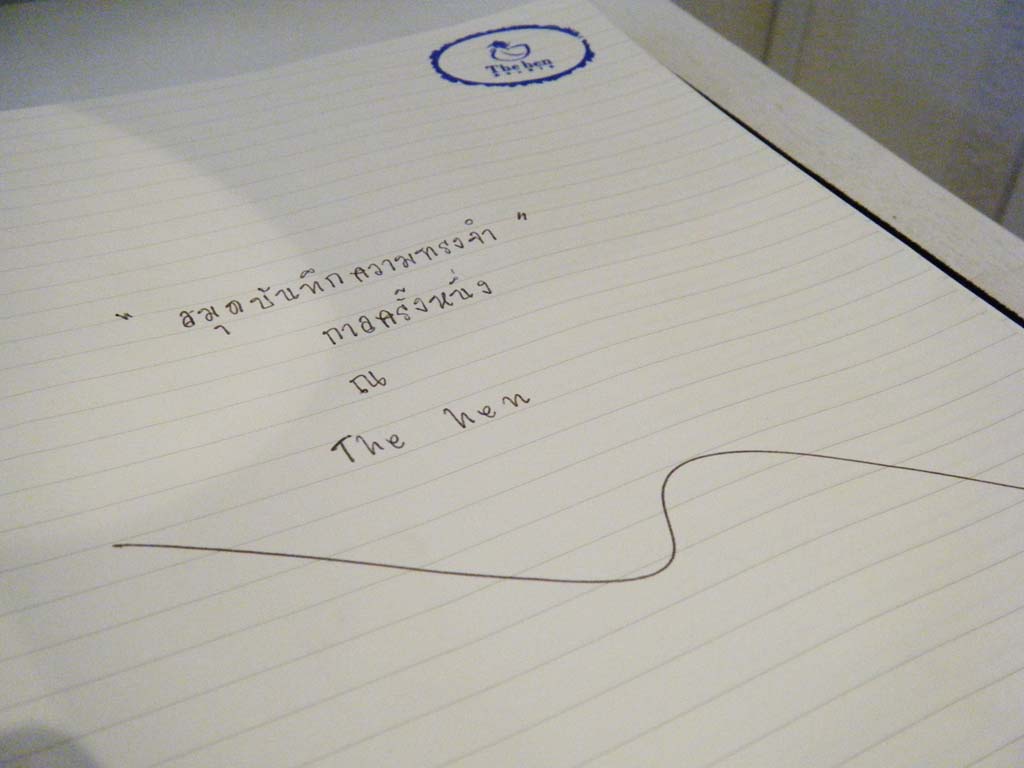 The hen
" สมุดบันทึกความทรงจำ "
กาลครั้งหนึ่ง
ณ
The hen